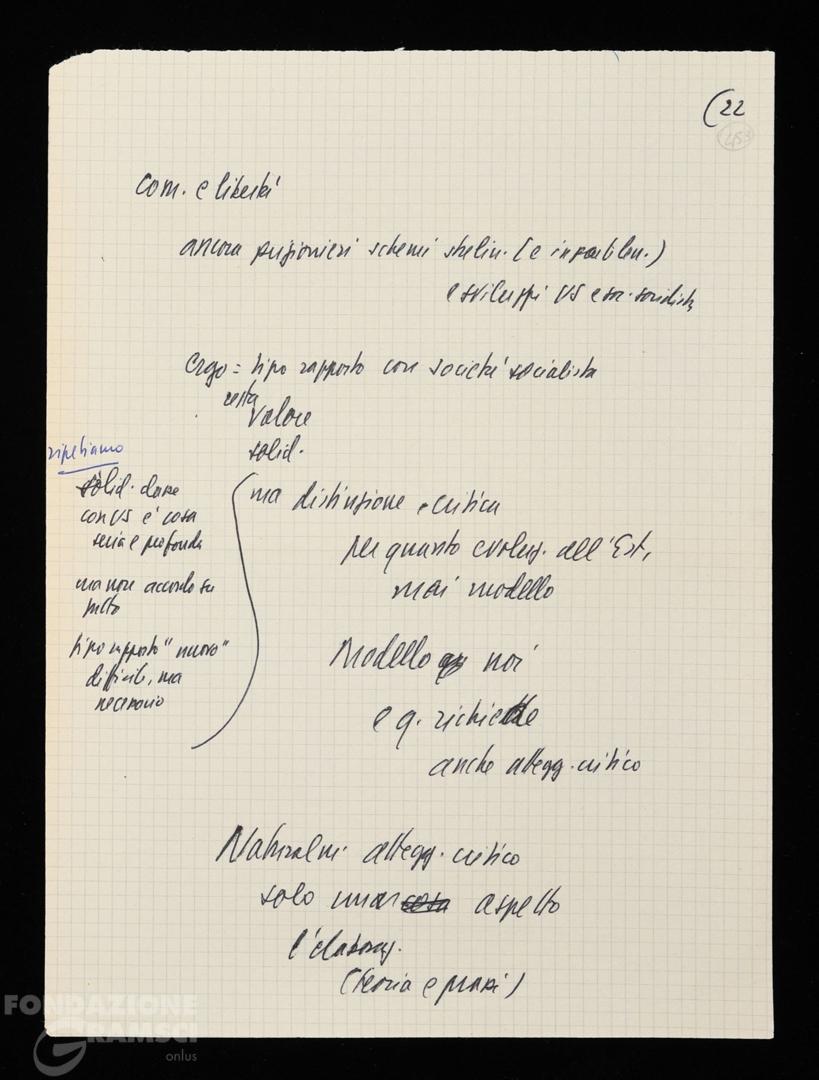 (22
453
com. e libertà
ancora prigionieri schemi stalin. (e insostiten.)
e sviluppi US e soc. socialista
ergo = tipo rapporto con società socialista
resta
valore
solid.
ripetiamo
solid. dare
con US è cosa
seria e profonda
ma non accordo su
tutto
tipo rapporto "nuovo"
difficile, ma
necessario
ma distinzione e critica
per quanto evoluz. all'Est,
mai modello
Modello noi
e q. richiede
anche attegg. critico
Naturalm. attegg. critico
solo un aspetto
l'elaboraz.
(teoria e prassi)
FONDAZIONE
GRAMSCI
onlus